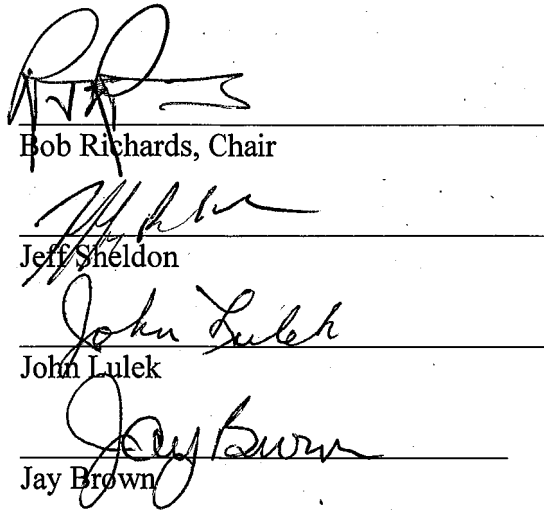 Bob Richards, Chair
Jeff Sheldon
John Lulek
John Lulek
Jay Brown
Jay Brown